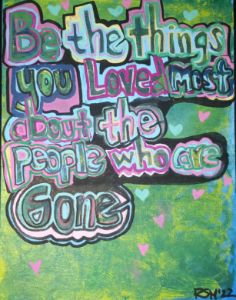 Be the things
you Loved most
about the
People who are
Gone